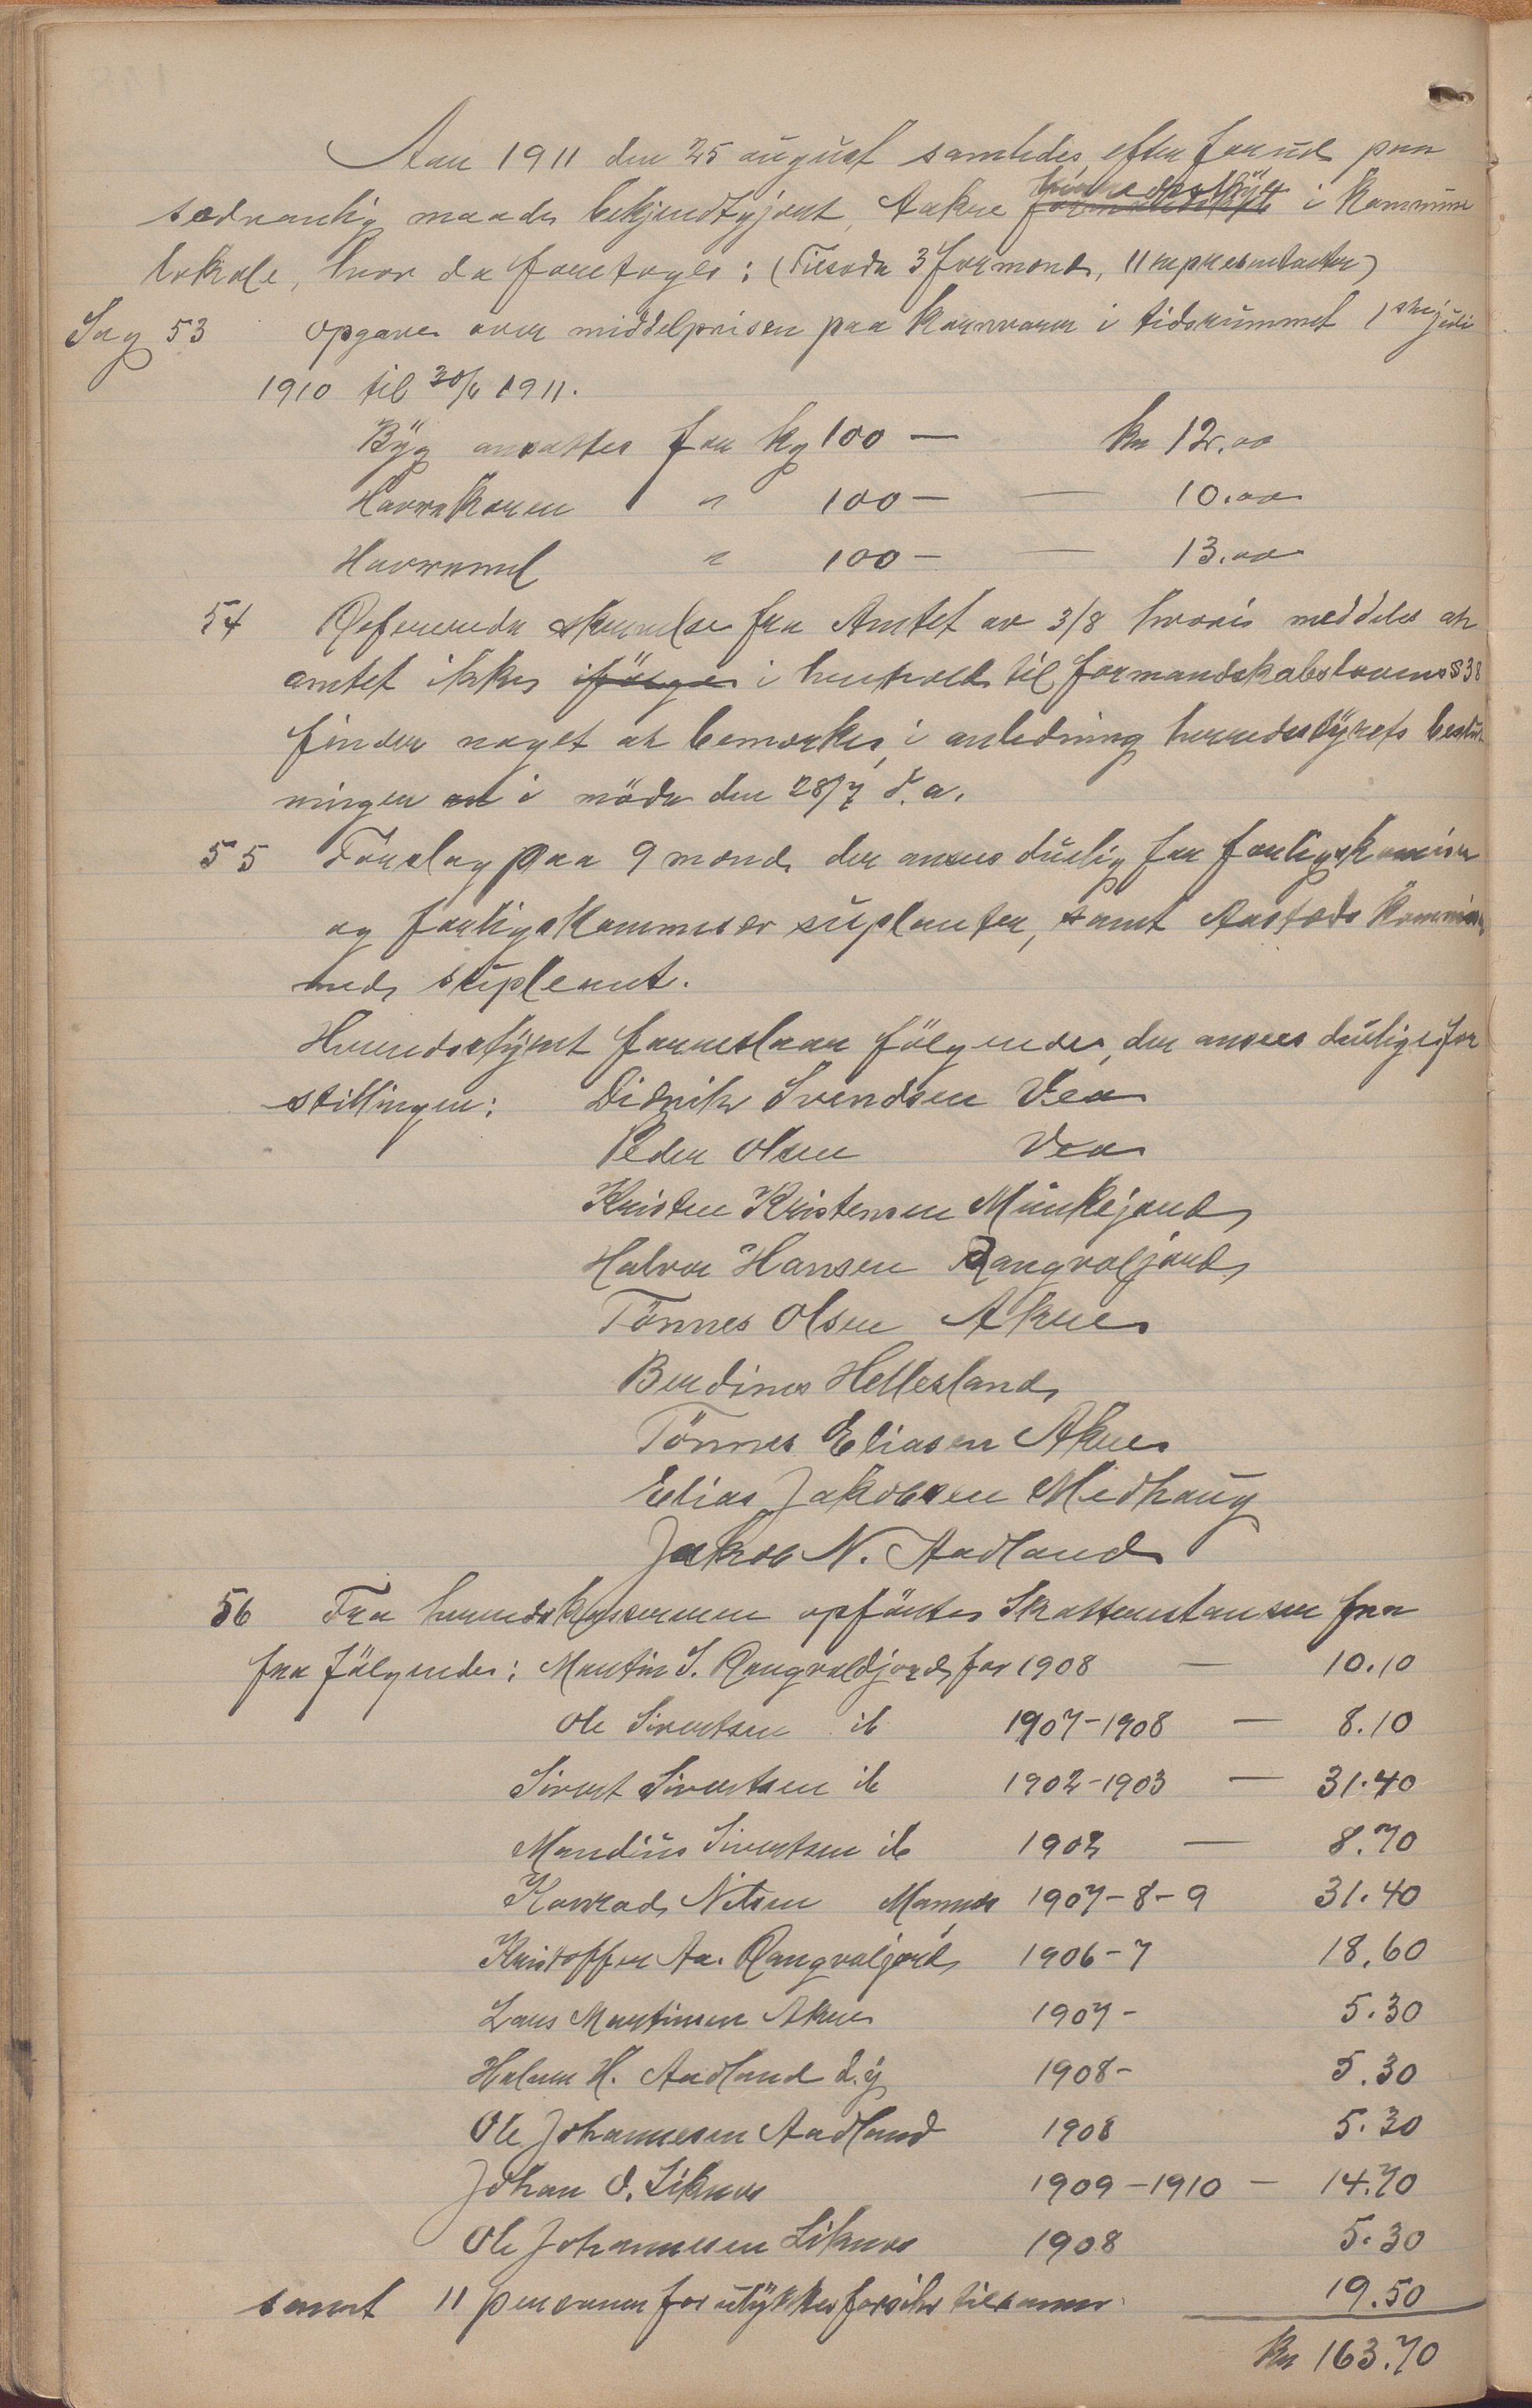 Aar 1911 den 25 august samledes efter forud paa
sedvanlig maade bekjendtgjort, Aakre herredsstÿre formandskab i Kommune
lokale, hvor da foretoges: (Tilstede 3 formænd, 11 representanter)
Sag 53 Opgave over middelprisen paa Kornvarer i tidsrummet 1ste juli
1910 til 30/6 1911.
Bÿg ansattes for kg 100 — kr 12.00
Havrekoren " 100 — — 10.00
Havremel " 100 — — 13.00
54 Refereredes skrivelse fra Amtet av 3/8 hvori meddeles at
amtet ikke ifølge i henhold til formandskabslovens §38
finder noget at bemerke, i anledning herredsstÿrets beslut-
ninger i möde den 28/7 d.a.
55 Forslag paa 9 mænd der anses duelig for forligskomisær
og forligskommisær suplanter, samt Aastads Kommisær
med supleant.
Herredsstÿret foreslaar fölgende, der ansees duelige for
stillingen: Didrik Svendsen Vea
Peder Olsen Vea
Kristen Kristensen Munkejord
Halvor Hansen Rangvaljord
Tönnes Olsen Akre
Berdines Hellesland
Tönnes Eliasen Akre
Elias Jakobsen Medhaug
Jakob N. Aadland
56 Fra herredskassereren opförtes Skatterestanser for
fra fölgende: Martin S. Rangvaldjord for 1908 — 10.10
Ole Sivertsen ib 1907-1908 — 8.10
Sivert Sivertsen ib 1902-1903 — 31.40
Mandius Sivertsen ib 1902 — 8.70
Konrad Nilsen Mannes 1907-8-9 31.40
Kristoffer Aa. Rangvaljord 1906-7 18.60
Lars Martinsen Akre 1907- 5.30
Halvor H. Aadland d.ÿ 1908- 5.30
Ole Johannesen Aadland 1908 5.30
Johan O. Liknes 1909-1910 — 14.70
Ole Johannesen Liknes 1908 5.30
samt 11 personer for ulÿkkesforsikr tilsammen 19.50
kr 163.70